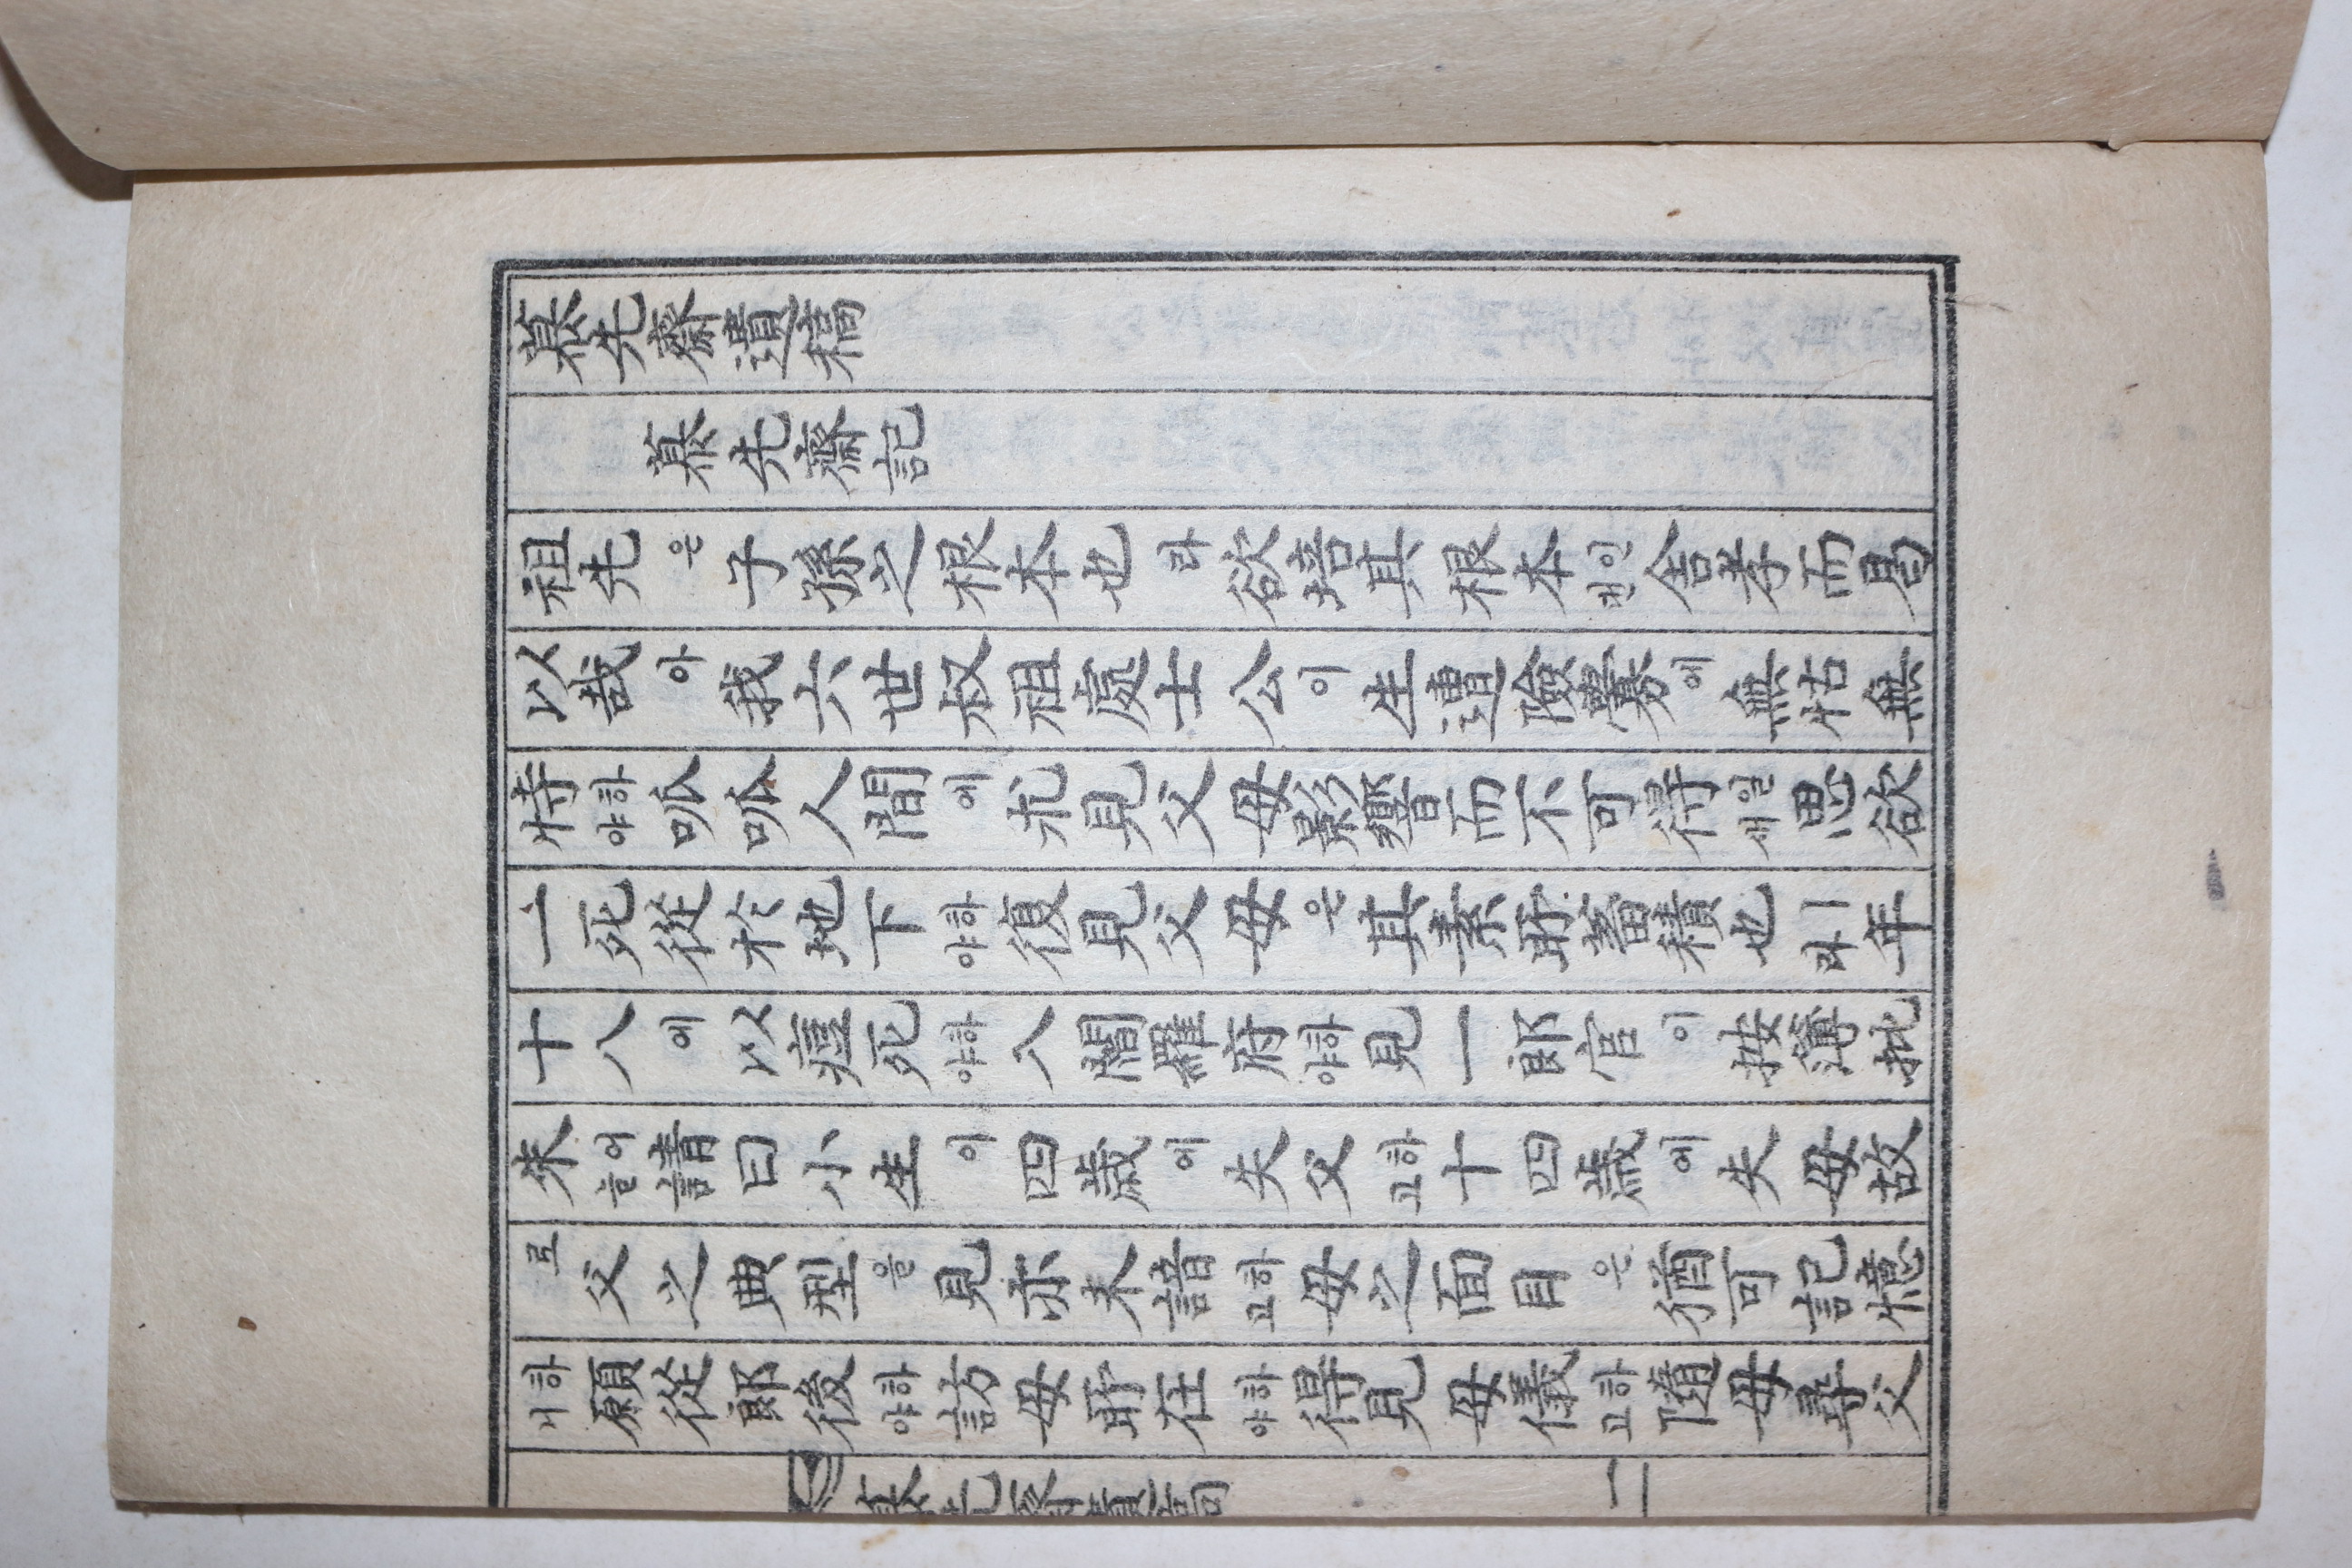 慕先齋遺稿
慕先齋記
祖先은子孫之根本也라欲培其根本인댄舍孝而曷
以哉아我六世叔祖處士公이生遭險釁에無怙無
恃하야呱呱人間에求見父母影響而不可得일새思欲
一死從於地下하야復見父母은其素所蓄積也ㅣ라年
十八에以瘧死하야入閻羅府하야見一郎官이按簿批
朱어늘請曰小生이四歲에失父하고十四歲에失母故
로父之典型을見亦未諳하고母之面目은猶可記憶
하니願從郎後하야訪母所在하야得見母儀하고隨母尋父
慕先齋遺稿 一